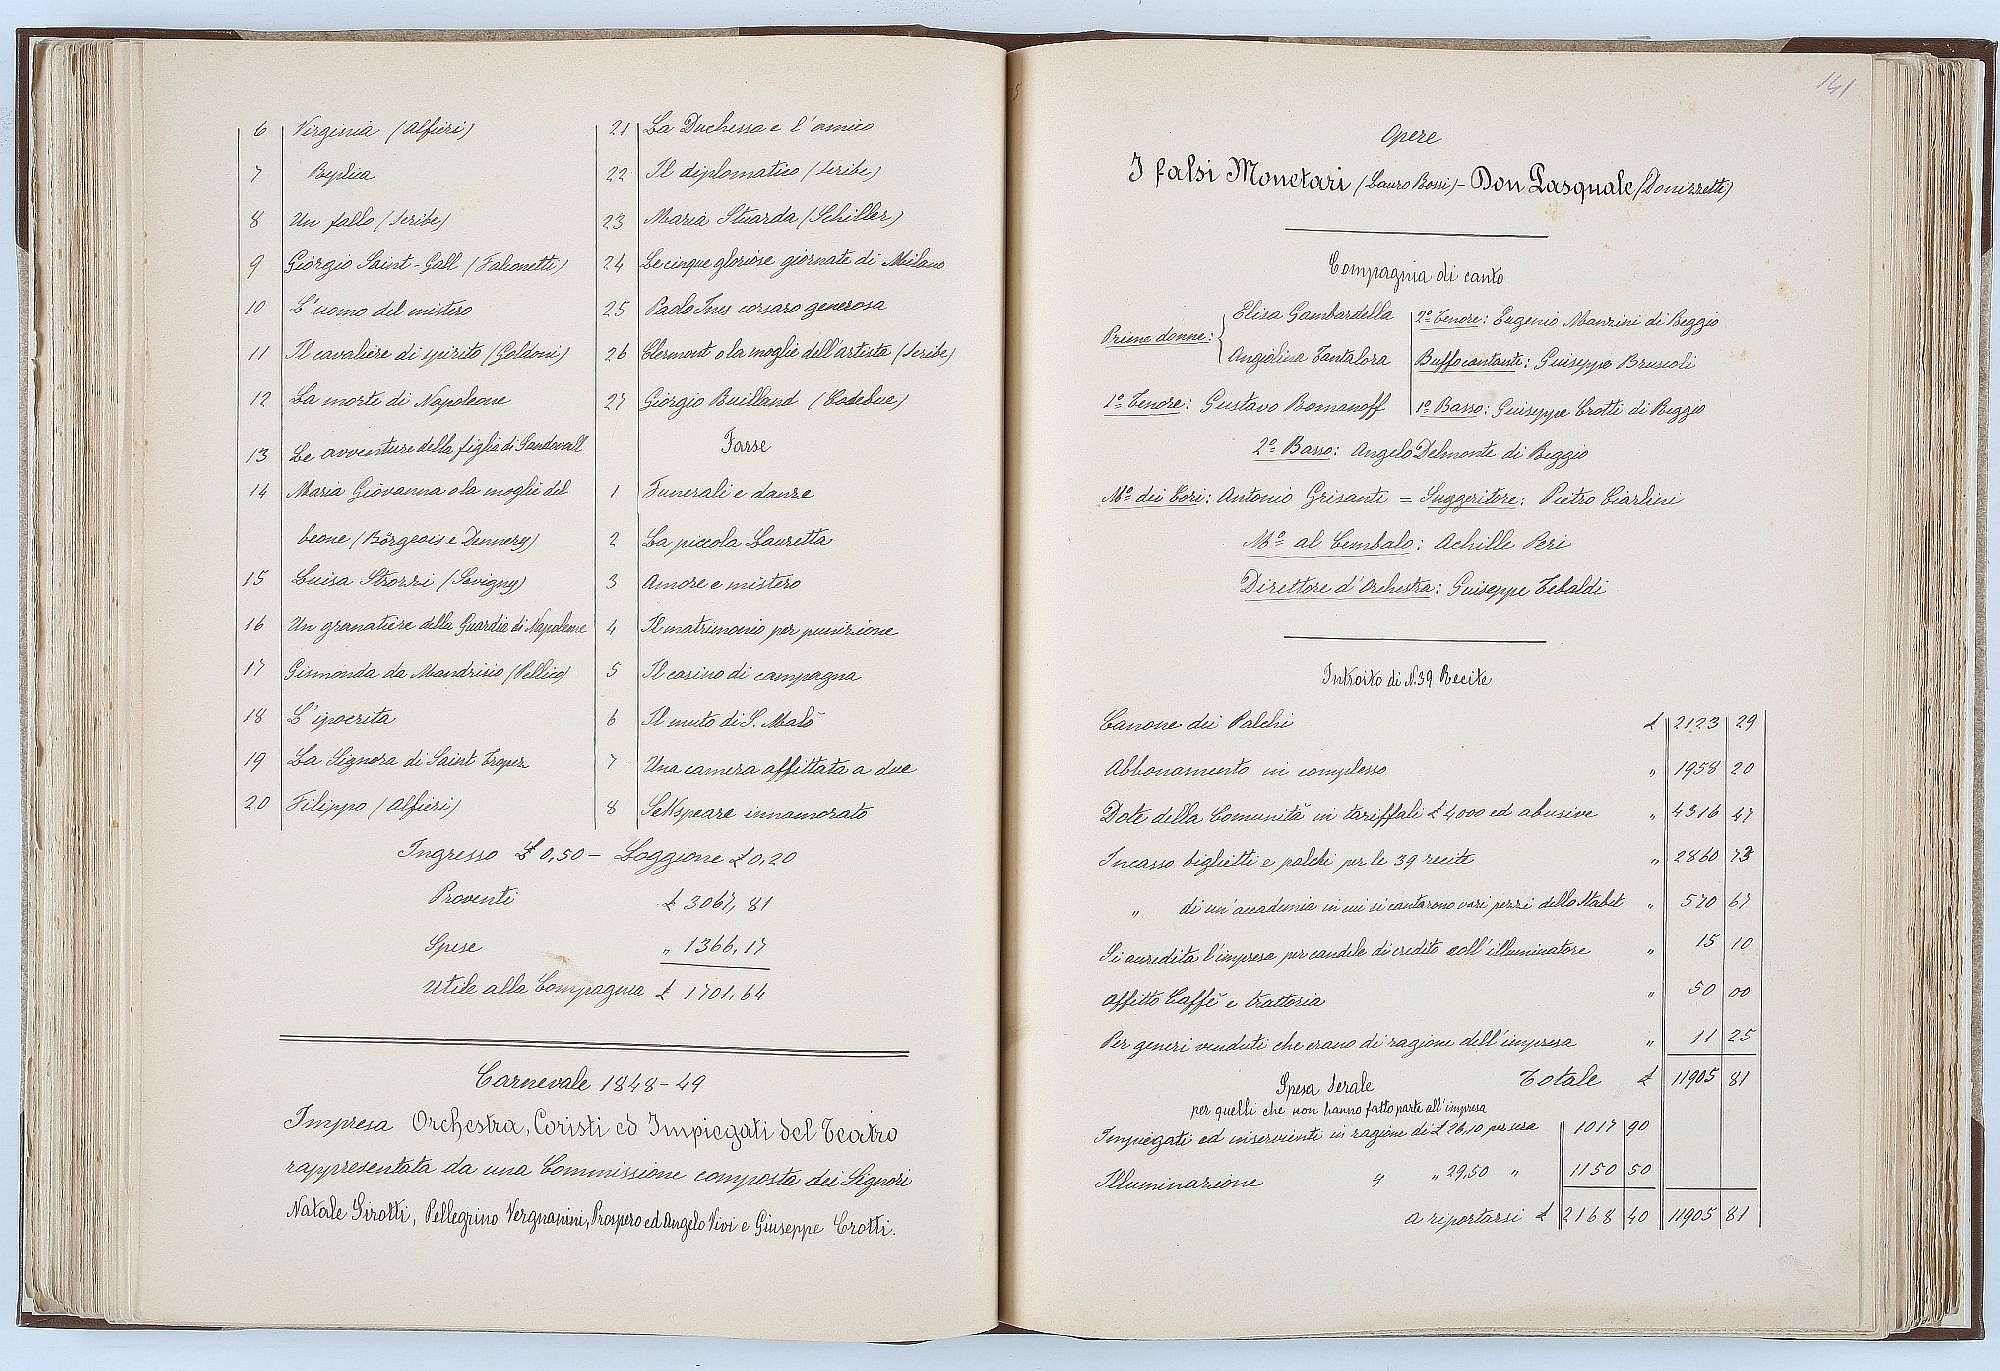 6 Virginia (Alfieri)
7
8 Un fallo (Scribe)
9 Giorgio Saint-Gall (Falconetti)
10 L'uomo del mistero
11 Il cavaliere di spirito (Goldoni)
12 La morte di Napoleone
13 Le avventure della figlia di Sandovall
14 Maria Giovanna o la moglie del
beone (Börgeois e Dennery)
15 Luisa Strozzi (Sevigny)
16 Un granatiere della Guardia di Napoleone
17 Gismonda da Mendrisio (Pellico)
18 L'ipocrita
19 La Signora di Saint Tropez
20 Filippo (Alfieri)
21 La Duchessa e l'amico
22 Il diplomatico (Scribe)
23 Maria Stuarda (Schiller)
24 Le cinque gloriose giornate di Milano
25 Paolo Ines corsaro generoso
26 Clermont o la moglie dell'artista (Scribe)
27 Giorgio Builland (Codebue)
Farse
1 Funerali e danze
2 La piccola Lauretta
3 Amore e mistero
4 Il matrimonio per punizione
5 Il casino di campagna
6 Il muto di S. Malò
7 Una camera affittata a due
8 innamorato
Ingresso £ 0,50 - Loggione £ 0,20
Proventi £ 3067,81
Spese " 1366,17
Utile alla Compagnia £ 1701,64
Carnevale 1848-49
Impresa Orchestra, Coristi ed Impiegati del Teatro
rappresentata da una Commissione composta dei Signori
Natale Sirotti, Pellegrino Vergnanini, Prospero ed Angelo Vivi e Giuseppe Crotti.
141
Opere
I falsi Monetari (Lauro Rossi) - Don Pasquale (Donizzetti)
Compagnia di canto
Prime donne: Elisa Gambardella
Angiolina Tantalora
1º Tenore: Gustavo Romanoff
2º Tenore: Eugenio Manzini di Reggio
Buffo cantante: Guiseppe Bruscoli
1º Basso: Guiseppe Crotti di Reggio
2º Basso: Angelo Delmonte di Reggio
Mº dei Cori: Antonio Grisanti = Suggeritore: Pietro Ciarlini
Mº al Cembalo: Achille Peri
Direttore d'Orchestra: Guiseppe Tebaldi
Introito di N. 39 Recite
Canone dei Palchi £ 2123 29
Abbonamento in complesso " 1958 20
Dote della Comunità in tariffali £ 4000 ed abusive " 4316 47
Incasso biglietti e palchi per le 39 recite " 2860 73
" di un'accademia in cui si cantarono vari pezzi dello Stabat " 570 67
Si accredita l'impresa per candele di credito coll'illuminatore " 15 10
Affitto Caffè e trattoria " 50 00
Per generi venduti che erano di ragione dell'impresa " 11 25
Totale £ 11905 81
Spesa Serale
per quelli che non hanno fatto parte all'impresa
Impiegati ed inservienti in ragione di £ 26,10 per sera 1017 90
Illuminazione " " 29,50 " 1150 50
A riportarsi £ 2168 40 11905 81